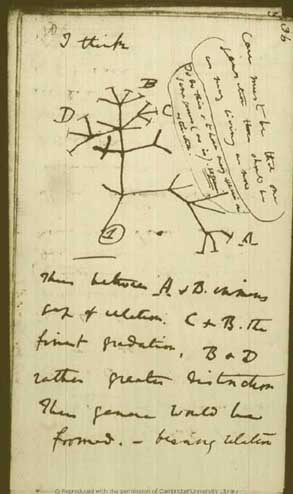 36
I think
Case must be that one
generation then should be
as many living as now
To do this & to have many species in
same genus (as is) requires
extinction.
B
D
C
A
1
Thus between A & B. immense
gap of relation. C & B. the
finest gradation, B & D
rather greater distinction
Thus genera would be
formed. — bearing relation
© Reproduced with the permission of Cambridge University